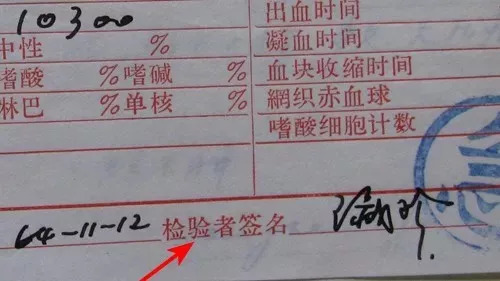 10300
出血时间
中性 %
凝血时间
嗜酸 % 嗜碱 %
血块收缩时间
淋巴 % 单核 %
網织赤血球
嗜酸细胞计数
64-11-12 检验者签名